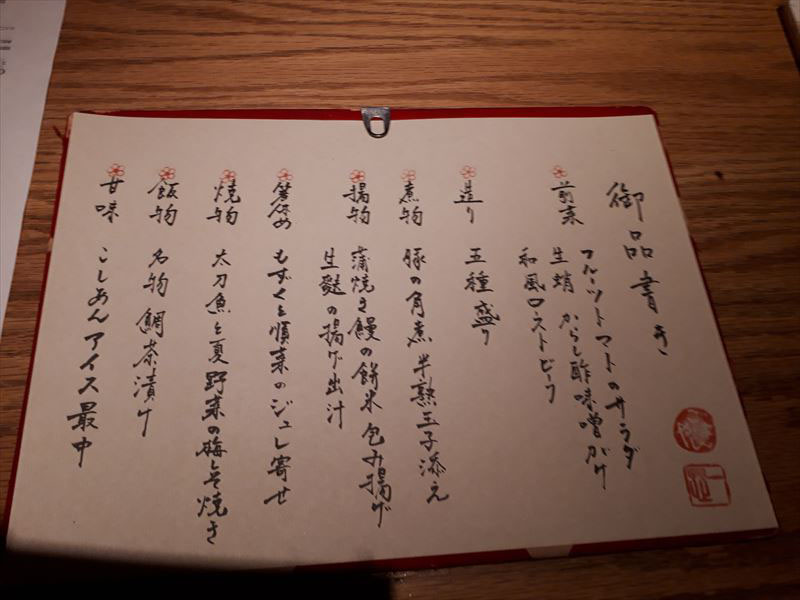 御品書き
前菜 フルーツトマトのサラダ
生蛸 からし酢味噌がけ
和風ローストビーフ
造り 五種盛り
煮物 豚の角煮 半熟玉子添え
揚物 蒲焼き鰻の餅米包み揚げ
生麩の揚げ出汁
箸休め もずくと順菜のジュレ寄せ
焼物 太刀魚と夏野菜の梅しそ焼き
飯物 名物 鯛茶漬け
甘味 こしあんアイス最中